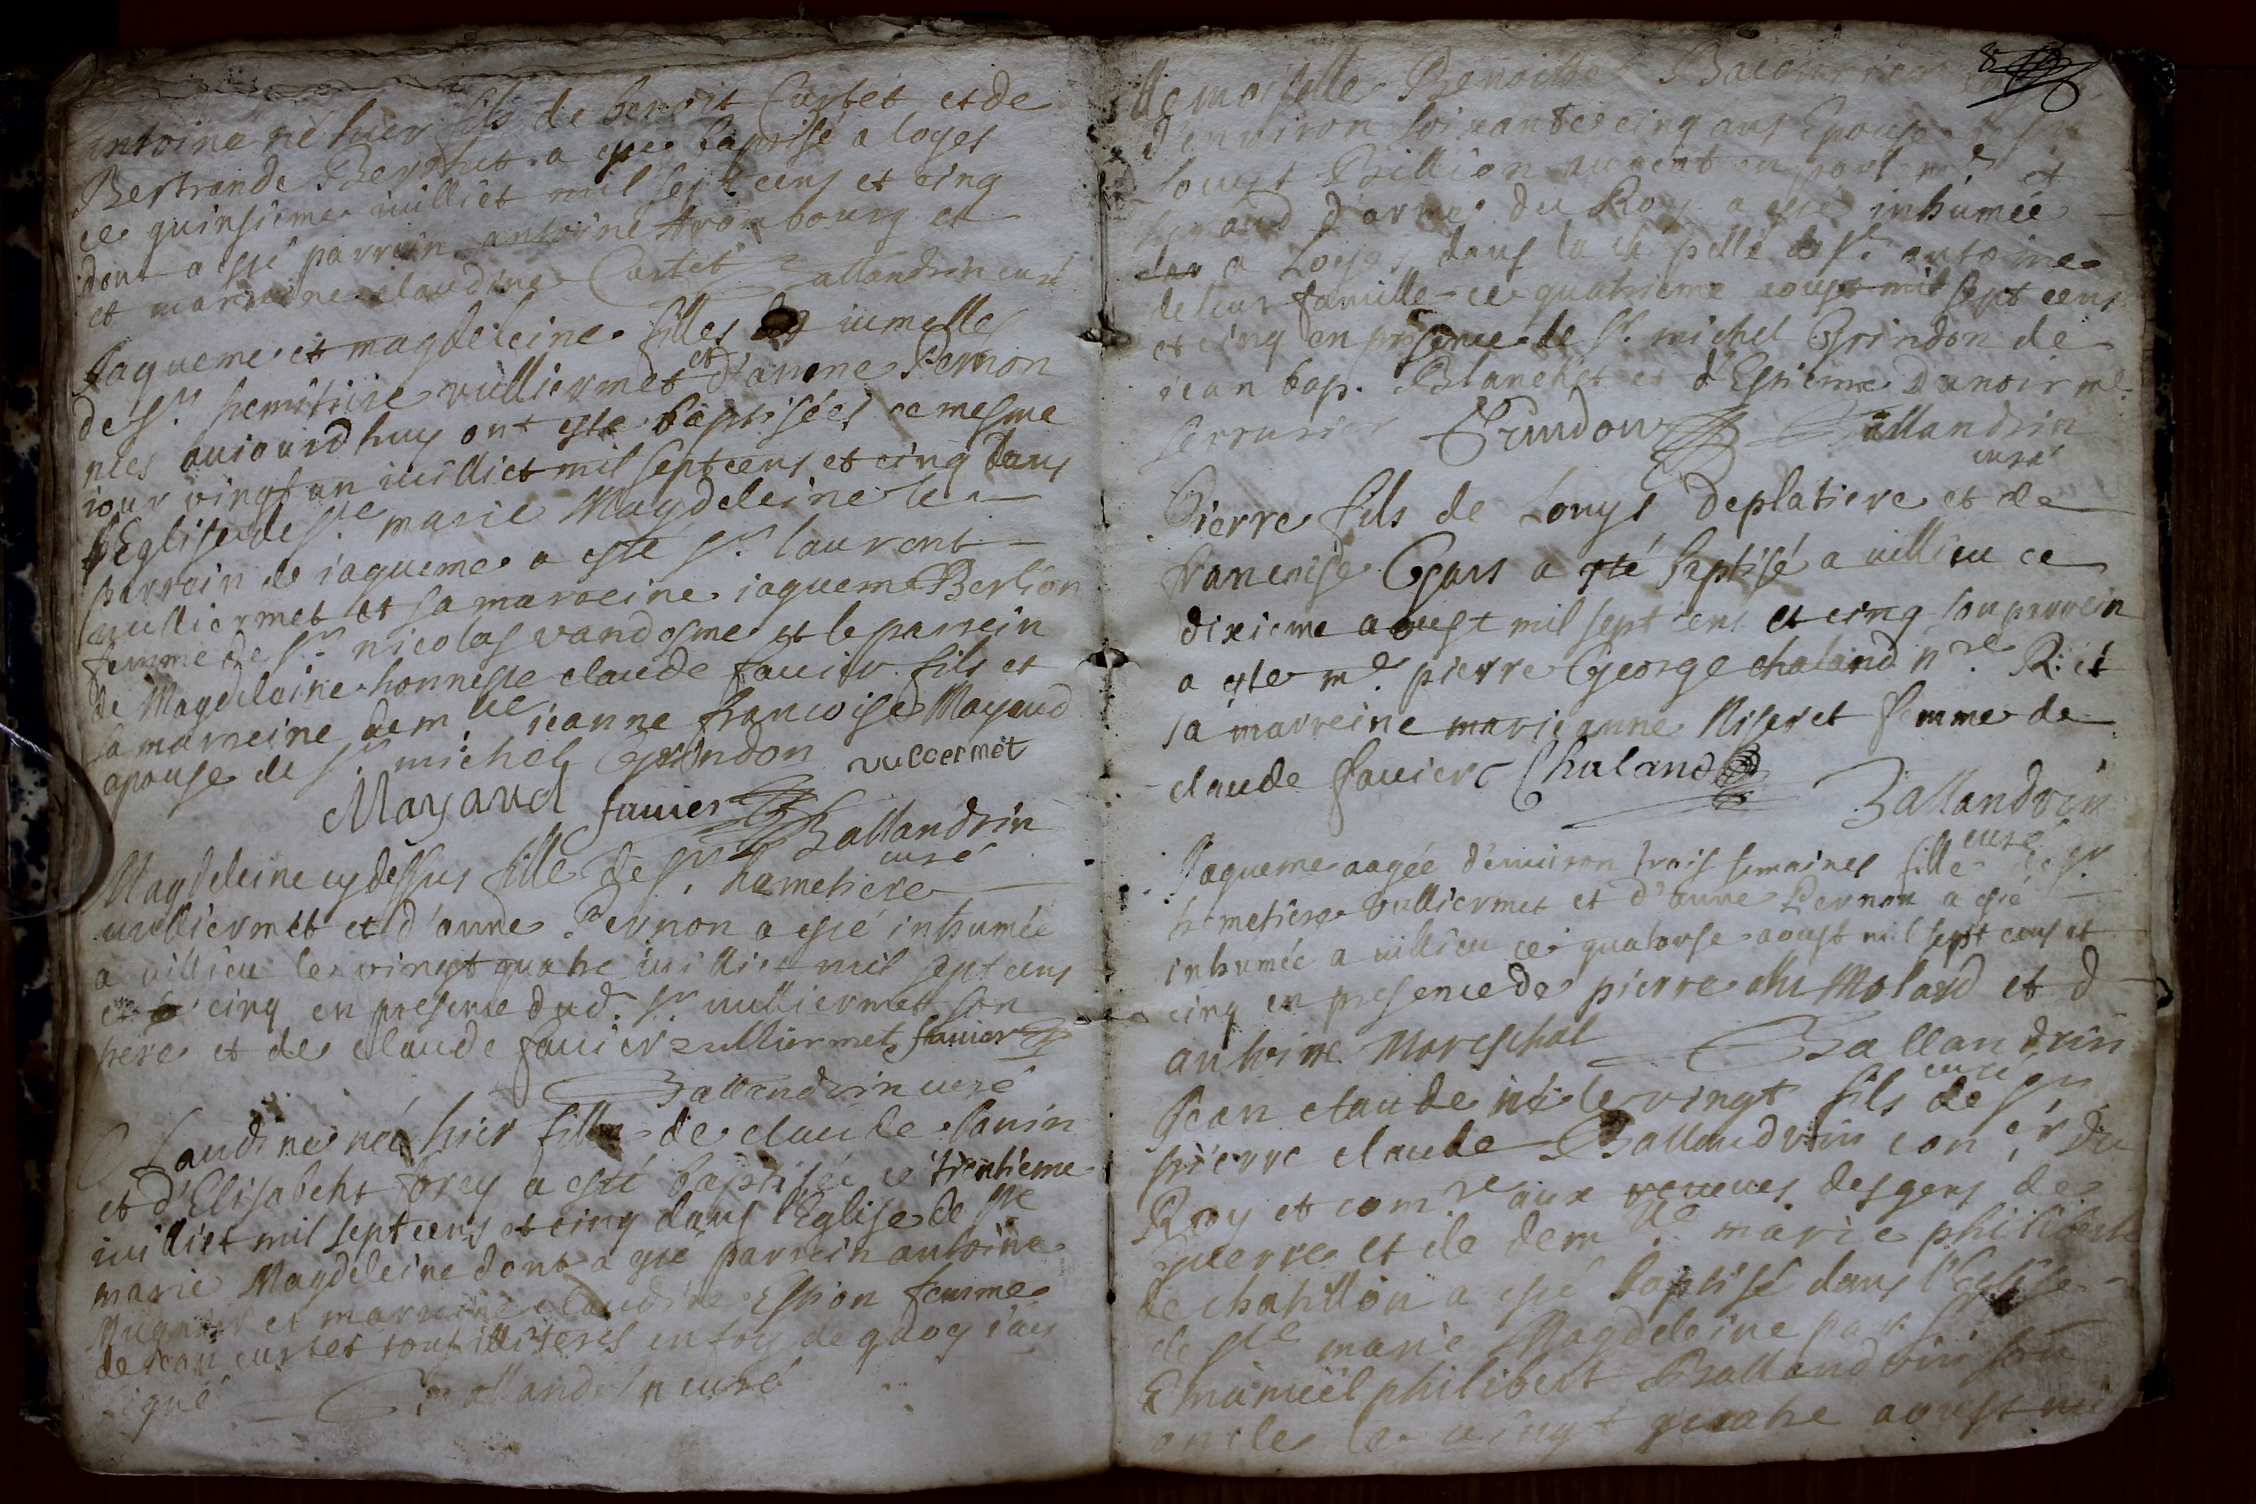 antoine né hier fils de benoit Curtet et de
Bertrande Berthet a esté baptisé a loyes
ce quinsieme iuilliet mil sept cens et cinq
dont a esté parrein antoine trombourg et
et marreine claudine Curtet Ballandrin curé
Jaqueme et magdeleine filles iumelles
de Sr. hemitiere vulliermet et d'anne Pernon
nées auiourdhuy ont este baptisées ce mesme
iour vingt un iuilliet mil sept cens et cinq dans
l'Eglise de Ste marie Magdeleine le
parrein de iaqueme a esté Sr. laurent
vulliermet et sa marreine iaqueme Berlion
femme de Sr. nicolas vandosme et le parrein
de Magdelaine honneste claude fauier fils et
sa marreine demlle jeanne francoise Mayaud
epouse de Sr. michel Grindon vulliermet
Mayaud fauier Ballandrin
curé
Magdeleine cy dessus fille de Sr. hemetiere
vulliermet et d'anne Pernon a esté inhumée
a villieu le vingt quatre iuilliet mil sept cens
et cinq en presence dud. Sr. vulliermet son
pere et de claude fauier vulliermet fauier
Ballandrin curé
Claudine née hier fille de claude Janin
et d'Elisabeht forey a esté baptisée ce trentieme
iuilliet mil sept cens et cinq dans l'Eglise de Ste
marie Magdeleine dont a esté parrein antoine
et marreine claudine Espion femme
de Jean curtet tous illiteres en foy de quoy i'ay
signé Ballandrin curé
8
Demoiselle Benoitte
d'enuiron soixante cinq ans Epouse de Sr
Louys Billion
heraud d'armes du Roy a esté inhumée
a Loyes dans la chapelle de St. antoine
de leur famille ce quatrieme aoust mil sept cens
et cinq en presence de Sr. michel Grindon de
jean bap. Blanchet et d'Estienne Dunoir me.
serrurier Grindon Ballandrin
curé
Pierre fils de Louys Deplatiere et de
francoise Gars a esté baptisé a uillieu ce
dixieme aoust mil sept cens et cinq son parrein
a este me. pierre George chaland nre. R. et
sa marreine marie anne Niseret femme de
claude fauier Chaland
Ballandrin
curé
Jaqueme aagée d'enuiron trois semaines fille de Sr.
hemetiere vulliermet et d'anne Pernon a esté
inhumée a uillieu ce quatorse aoust mil sept cens et
cinq en presence de pierre du Molard et d
anthoine Mareschal Ballandrin
curé
Jean claude né le vingt fils de Sr.
pierre claude Ballandrin coner. du
Roy et comre. aux reueues des gens de
guerre et de demlle. marie philiberte
de chatillon a esté baptisé dans l'Eglise
de Ste marie Magdeleine par Sr
Emanuel philibert Ballandrin son
oncle le vingt quatre aoust mil